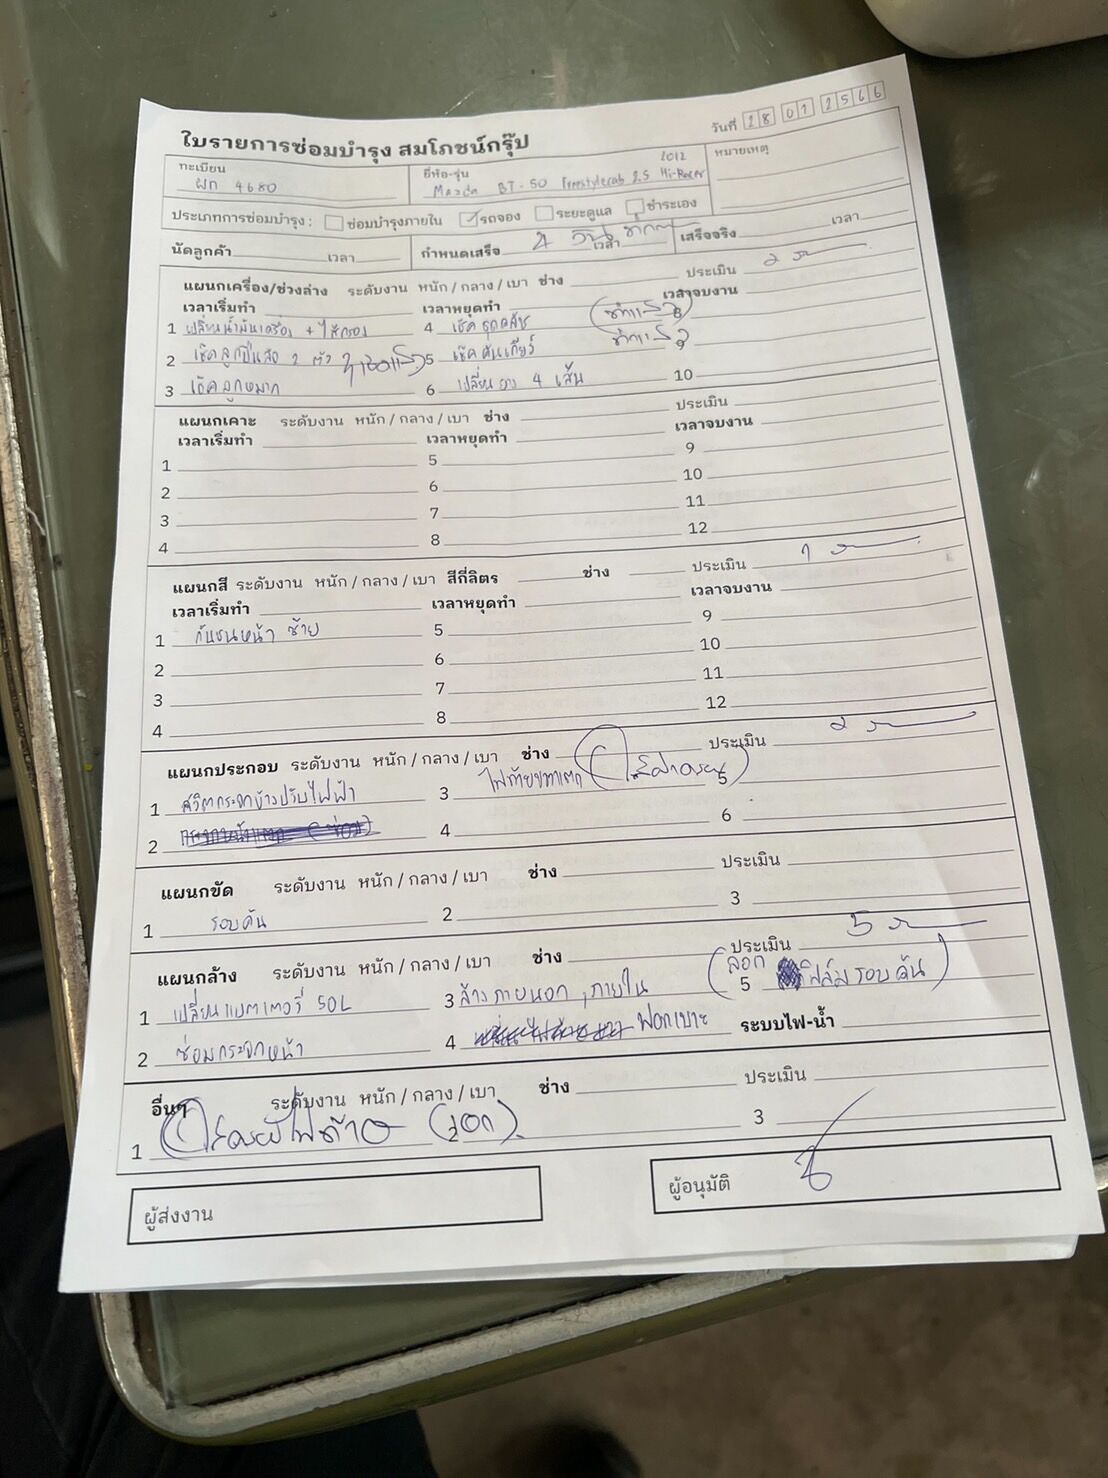 ใบรายการซ่อมบำรุง สมโภชน์กรุ๊ป
วันที่ 28 01 2566
ทะเบียน
ผก 4680
ยี่ห้อ-รุ่น 2012
Mazda BT-50 Freestylecab 2.5 Hi-Racer
หมายเหตุ
ประเภทการซ่อมบำรุง : ซ่อมบำรุงภายใน รถจอง ระยะดูแล ชำระเอง
นัดลูกค้า เวลา กำหนดเสร็จ 4 วัน เวลา เสร็จจริง เวลา
แผนกเครื่อง/ช่วงล่าง ระดับงาน หนัก / กลาง / เบา ช่าง ประเมิน 2 วัน
เวลาเริ่มทำ เวลาหยุดทำ เวลาจบงาน
1 เปลี่ยนน้ำมันเครื่อง + ไส้กรอง 4 เช็ค ชุดคลัช (ทำแล้ว) 8
2 เช็ค ลูกปืนล้อ 2 ตัว 5 เช็ค คันเกียร์ ทำแล้ว 9
3 เช็ค ลูกหมาก 6 เปลี่ยน ยาง 4 เส้น 10
แผนกเคาะ ระดับงาน หนัก / กลาง / เบา ช่าง ประเมิน
เวลาเริ่มทำ เวลาหยุดทำ เวลาจบงาน
1 5 9
2 6 10
3 7 11
4 8 12
แผนกสี ระดับงาน หนัก / กลาง / เบา สีกี่ลิตร ช่าง ประเมิน 1 วัน
เวลาเริ่มทำ เวลาหยุดทำ เวลาจบงาน
1 กันชนหน้า ซ้าย 5 9
2 6 10
3 7 11
4 8 12
แผนกประกอบ ระดับงาน หนัก / กลาง / เบา ช่าง ประเมิน 2 วัน
1 สวิตกระจกข้างปรับไฟฟ้า 3 ไฟท้ายขวาแตก 5
2 4 6
แผนกขัด ระดับงาน หนัก / กลาง / เบา ช่าง ประเมิน
1 รอบคัน 2 3
แผนกล้าง ระดับงาน หนัก / กลาง / เบา ช่าง ประเมิน 5 วัน
1 เปลี่ยนแบตเตอรี่ 50L 3 ล้าง ภายนอก , ภายใน 5 (ลอก ฟิล์ม รอบ คัน)
2 ซ่อมกระจกหน้า 4 ฟอกเบาะ ระบบไฟ-น้ำ
อื่นๆ ระดับงาน หนัก / กลาง / เบา ช่าง ประเมิน
1 2 3
ผู้ส่งงาน
ผู้อนุมัติ